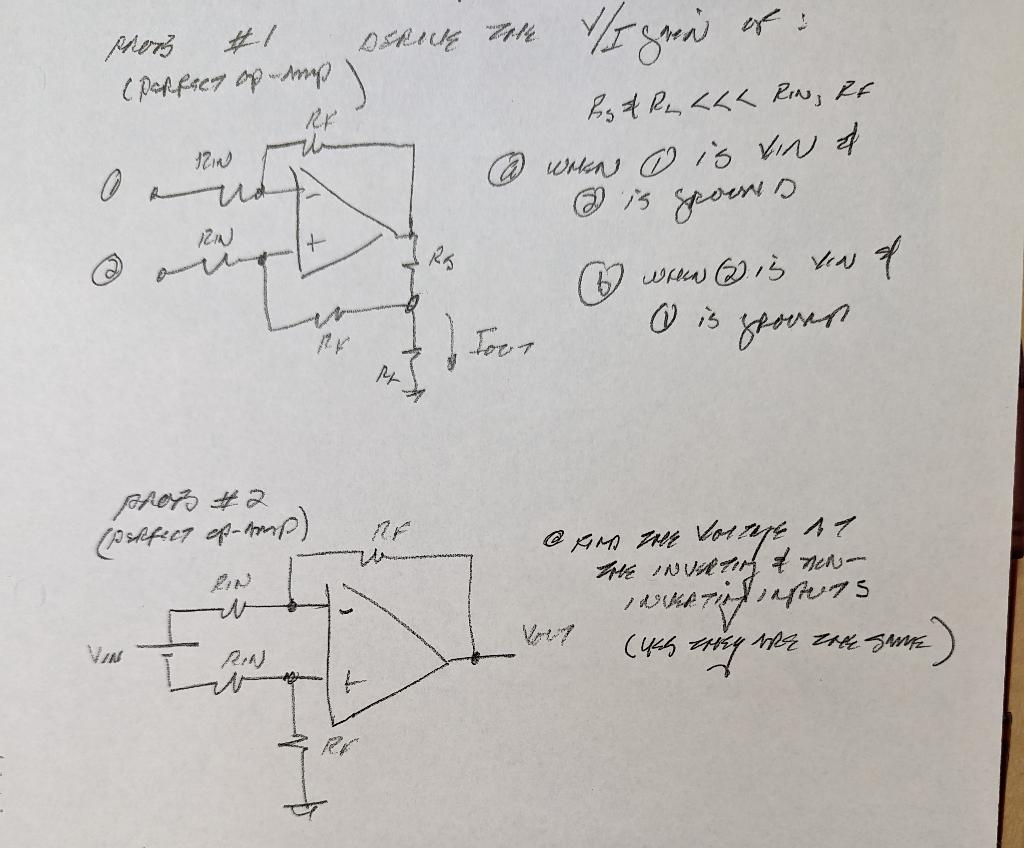 PROB #1 DERIVE THE V/I gain OF :
(PERFECT OP-AMP)
RS & RL <<< RIN, RF
RF
RIN
① 
-
ⓐ WHEN ① is VIN &
② is ground
RIN
②
+
RS
ⓑ WHEN ② is VIN &
① is ground
RF
IOUT
RL
PROB #2
(PERFECT OP-AMP)
RF
@ FIND THE VOLTAGE AT
THE INVERTING & NON-
INVERTING INPUTS
(YES THEY ARE THE SAME)
RIN
-
VIN
VOUT
RIN
+
RF